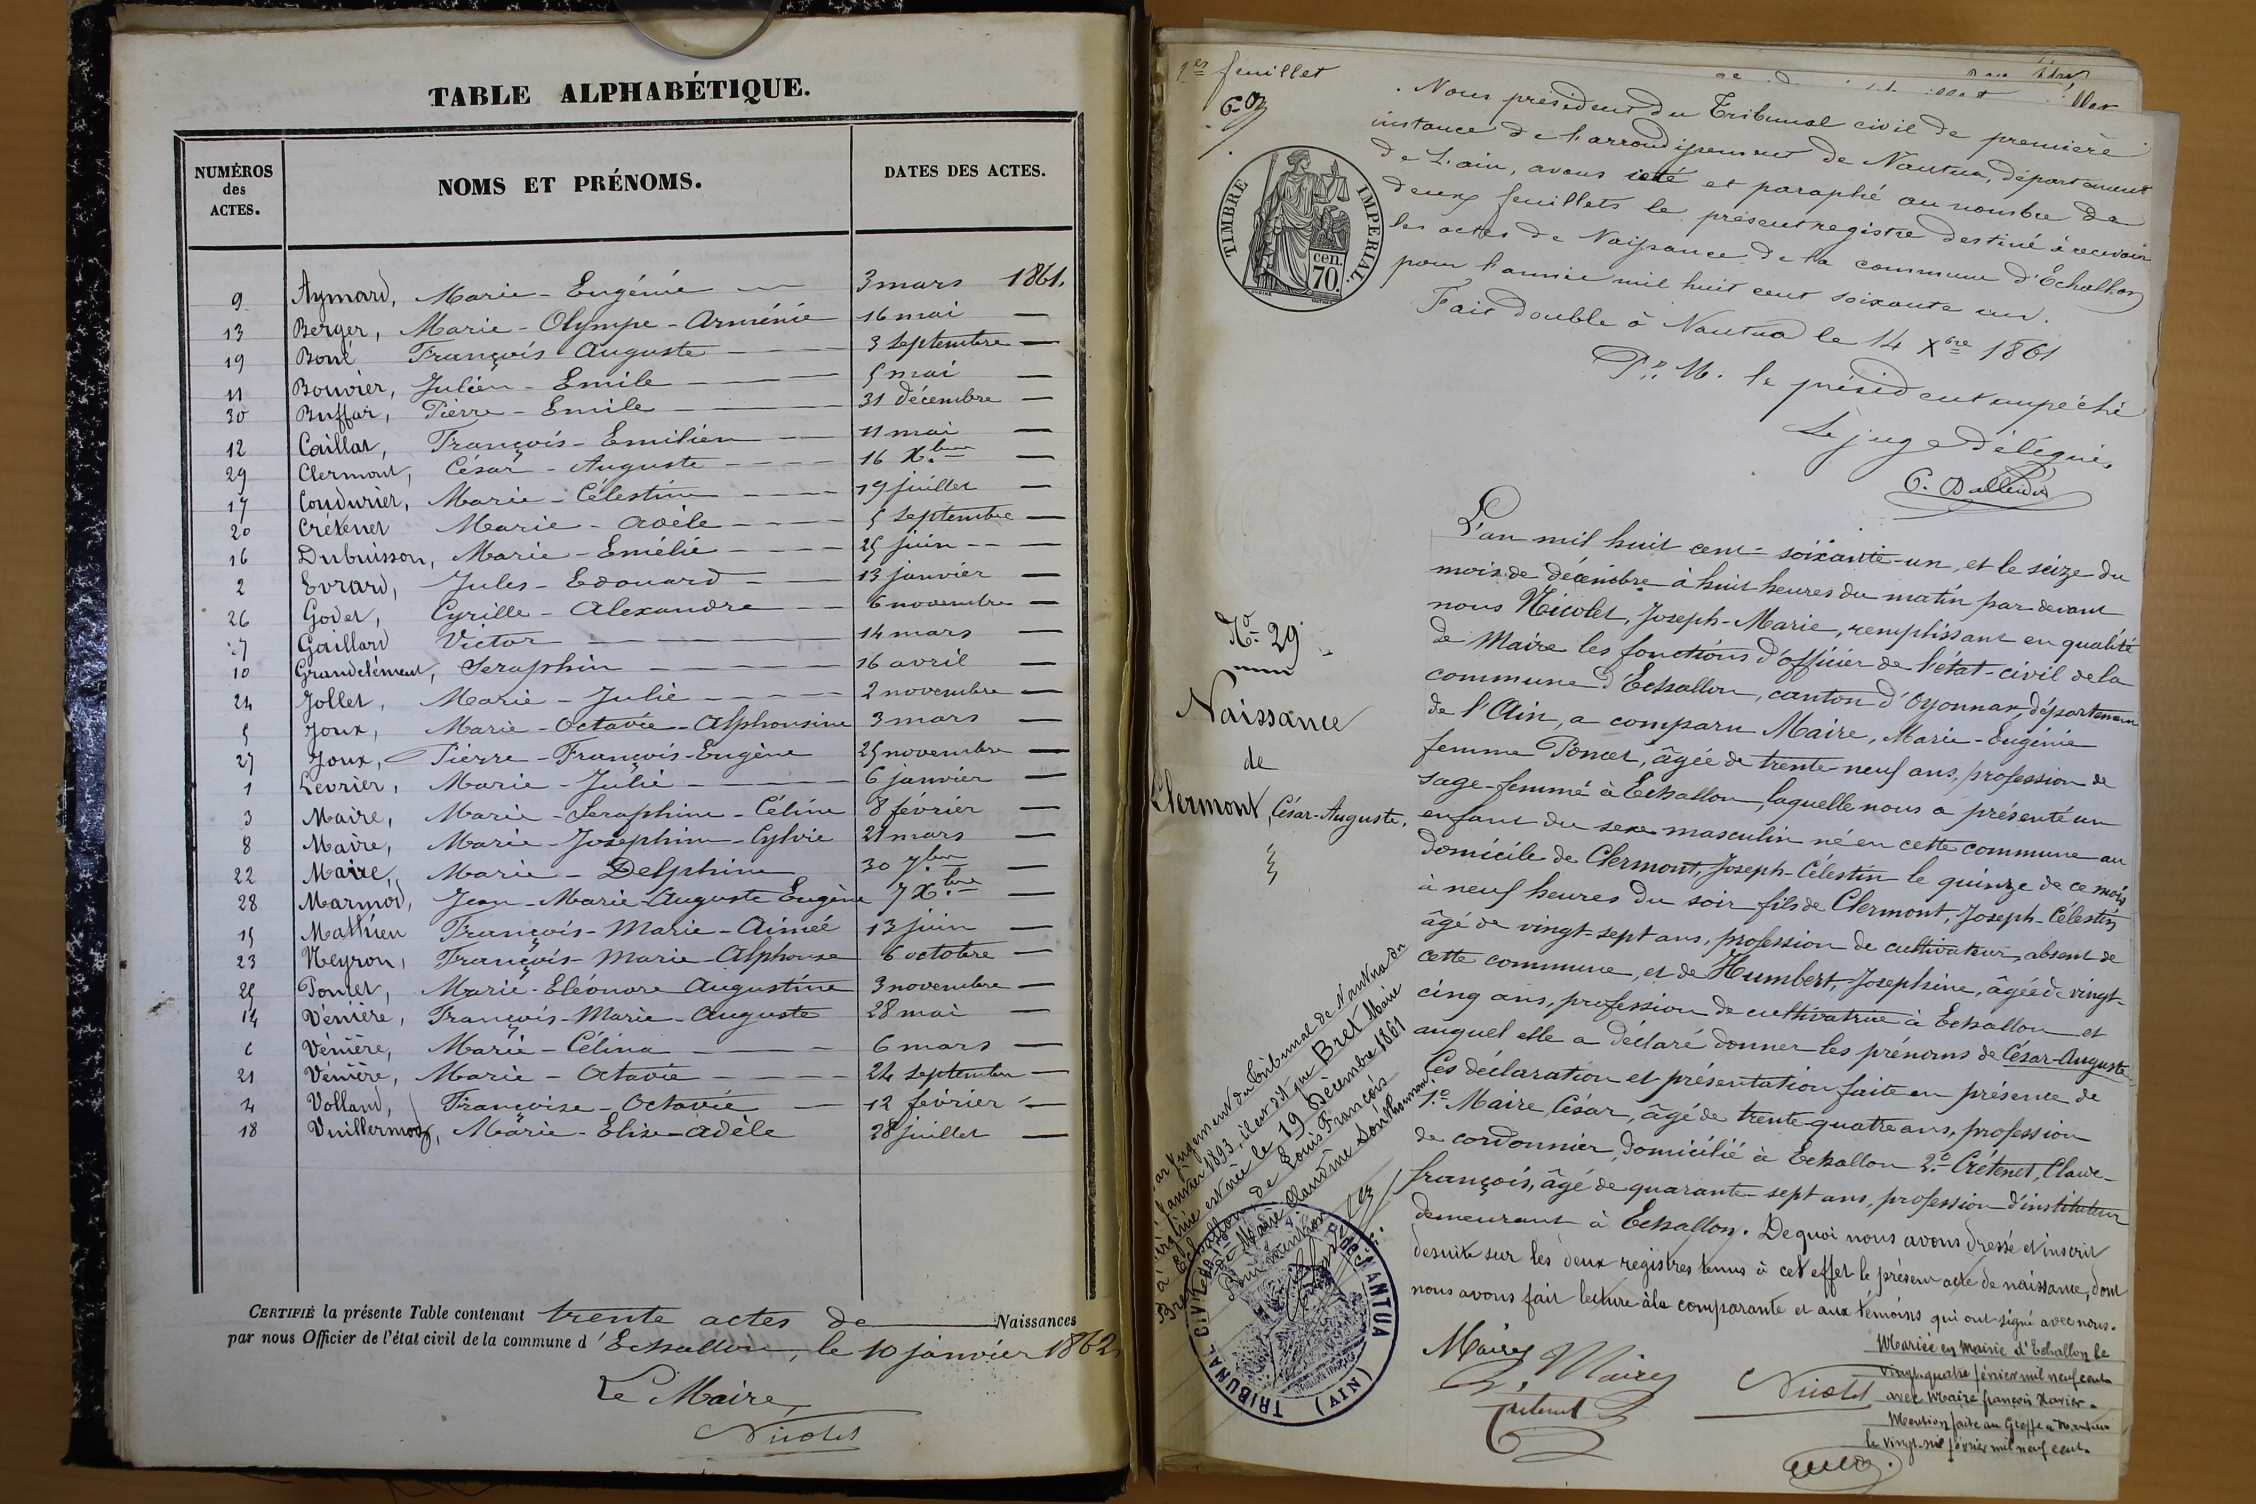 TABLE ALPHABÉTIQUE.
NUMÉROS des ACTES.
NOMS ET PRÉNOMS.
DATES DES ACTES.
9 Aymard, Marie-Eugénie 3 mars 1861.
13 Berger, Marie-Olympe-Arménie 16 mai —
19 Boné François Auguste 3 septembre —
11 Bouvier, Julien-Emile 5 mai —
30 Buffar, Pierre-Emile 31 décembre —
12 Caillat, François-Emilien 11 mai —
29 Clermont, César-Auguste 16 Xbre —
17 Coudurier, Marie-Célestine 19 juillet —
20 Crétenet Marie-Adèle 5 septembre —
16 Dubuisson, Marie-Emélie 25 juin —
2 Evrard, Jules-Edouard 13 janvier —
26 Godet, Cyrille-Alexandre 6 novembre —
7 Gaillard Victor 14 mars —
10 Grandclément, Seraphin 16 avril —
24 Jollet, Marie-Julie 2 novembre —
5 Joux, Marie-Octavie-Alphonsine 3 mars —
27 Joux, Pierre-François-Eugène 25 novembre —
1 Levrier, Marie-Julie 6 janvier —
3 Maire, Marie-Seraphine-Céline 8 février —
8 Maire, Marie-Josephine-Cylvie 21 mars —
22 Maire, Marie-Delphine 30 7bre —
28 Marmod, Jean-Marie-Auguste Eugène 7 Xbre —
15 Mathieu François-Marie-Aimé 13 juin —
23 Neyron, François-Marie-Alphonse 6 octobre —
25 Poncet, Marie-Eléonore Augustine 3 novembre —
14 Vénière, François-Marie-Auguste 28 mai —
6 Vénière, Marie-Célina 6 mars —
21 Vénière, Marie-Octavie 24 septembre —
4 Volland, Françoise-Octavie 12 février —
18 Vuillermoz, Marie-Elise-Adèle 28 juillet —
CERTIFIÉ la présente Table contenant trente actes de Naissances
par nous Officier de l'état civil de la commune d'Echallon, le 10 janvier 1862
Le Maire,
Nicolet
1er feuillet
TIMBRE IMPERIAL.
70 cen.
Nous président du Tribunal civil de première
instance de l'arrondissement de Nantua, département
de L'ain, avons coté et paraphé au nombre de
deux feuillets le présent registre destiné à recevoir
les actes de Naissance de la commune d'Echallon
pour l'année mil huit cent soixante un.
Fait double à Nantua le 14 Xbre 1861
Pr. M. le président empêché
Le juge délégué,
No. 29
Naissance
de
Clermont, César-Auguste.
L'an mil huit cent soixante-un, et le seize du
mois de décembre à huit heures du matin par devant
nous Nicolet, Joseph-Marie, remplissant en qualité
de Maire les fonctions d'officier de l'état-civil de la
commune d'Echallon, canton d'Oyonnax, département
de l'Ain, a comparu Maire, Marie-Eugénie
femme Poncet, âgée de trente-neuf ans, profession de
sage-femme à Echallon, laquelle nous a présenté un
enfant du sexe masculin né en cette commune au
domicile de Clermont, Joseph-Célestin le quinze de ce mois
à neuf heures du soir fils de Clermont, Joseph-Célestin,
âgé de vingt-sept ans, profession de cultivateur, absent de
cette commune, et de Humbert, Josephine, âgée de vingt-
cinq ans, profession de cultivatrice à Echallon et
auquel elle a déclaré donner les prénoms de César-Auguste
Les déclaration et présentation faite en présence de
1.° Maire César, âgé de trente-quatre ans, profession
de cordonnier, domicilié à Echallon 2.° Crétenet, Claude-
françois, âgé de quarante-sept ans, profession d'instituteur
demeurant à Echallon. De quoi nous avons dressé et inscrit
desuite sur les deux registres tenus à cet effet le présent acte de naissance, dont
nous avons fait lecture à la comparante et aux témoins qui ont signé avec nous.
Maire
Maire
Nicolet
Crétenet
Par jugement du Tribunal de Nantua du
janvier 1893, il est dit que Bret Marie
est née le 19 Décembre 1861
à Echallon, de Louis François
Bret et de Marie Claudine Sonthonnax.
Pour mention
TRIBUNAL CIVIL DE NANTUA (AIN)
Mariée en Mairie d'Echallon le
vingt-quatre février mil neuf cent
avec Maire françois Xavier.
Mention faite au Greffe à Nantua
le vingt-six février mil neuf cent.